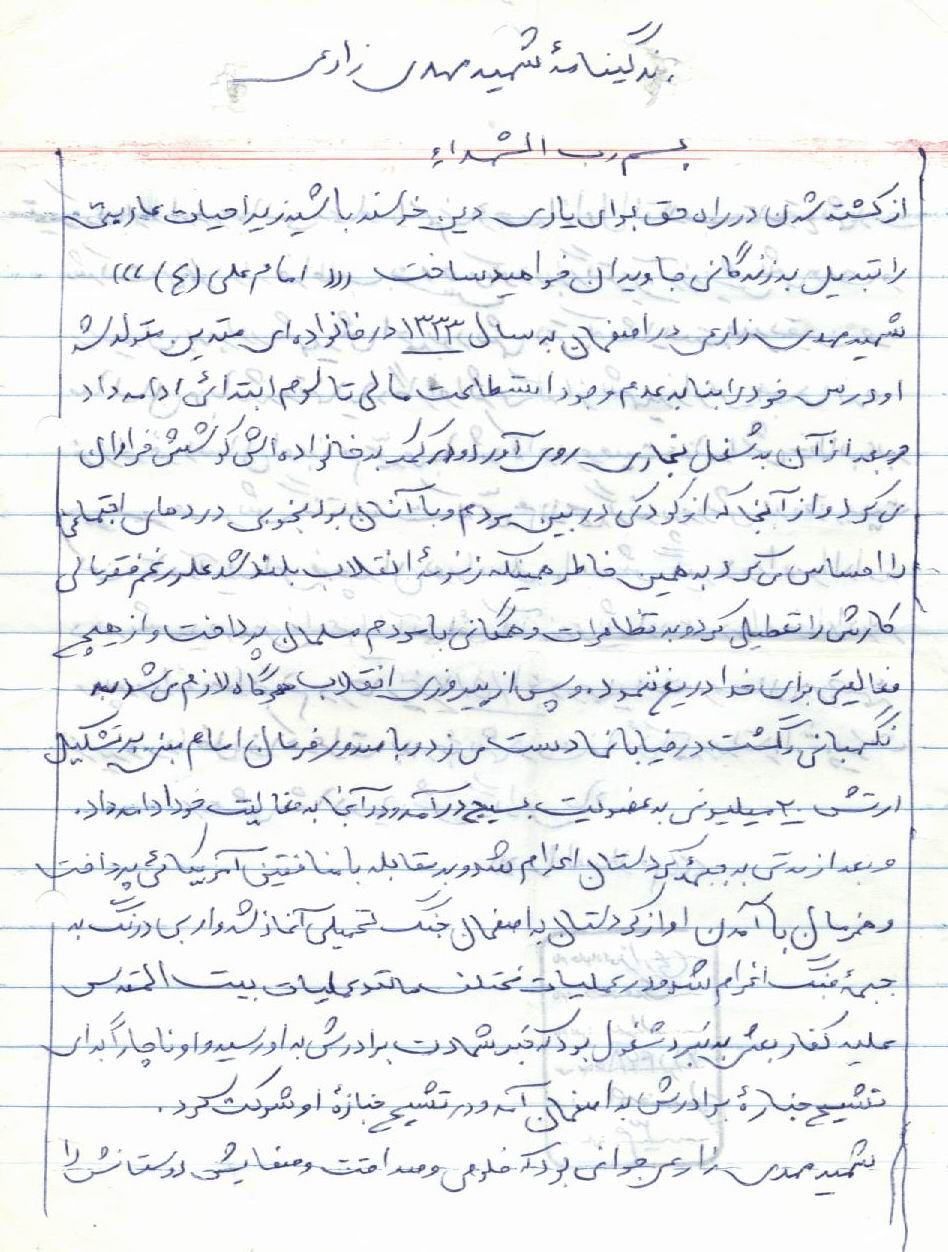 زندگینامۀ شهید مهدی زارعی
بسم رب الشهداء
از کشته شدن در راه حق برای یاری دین خرسند باشید زیرا حیات عاریتی
را تبدیل به زندگانی جاویدان خواهید ساخت ((( امام علی (ع) )))
شهید مهدی زارعی در اصفهان به سال ۱۳۳۳ در خانواده‌ای متدین متولد شد
او درس خود را بنا به عدم وجود استطاعت مالی تا سوم ابتدائی ادامه داد
و بعد از آن به شغل نجاری روی آورد و در کمک به خانواده‌اش کوشش فراوان
می‌کرد و از آنجا که از کودکی در بین مردم و با آنان بود بخوبی دردهای اجتماعی
را احساس می‌کرد به همین خاطر همینکه زمزمۀ انقلاب بلند شد علیرغم فقر مالی
کارش را تعطیل کرد و به تظاهرات و همگانی با مردم مسلمان پرداخت و از هیچ
فعالیتی برای خدا دریغ ننمود. و پس از پیروزی انقلاب هرگاه لازم می‌شد به
نگهبانی و گشت در خیابانها دست می‌زد و با صدور فرمان امام مبنی بر تشکیل
ارتش ۲۰ میلیونی به عضویت بسیج درآمد و در آنجا به فعالیت خود ادامه داد.
و بعد از مدتی به جبهۀ کردستان اعزام شد و به مقابله با منافقین آمریکائی پرداخت
و همزمان با آمدن او از کردستان به اصفهان جنگ تحمیلی آغاز شد و او بی درنگ به
جبهۀ جنگ اعزام شد و در عملیات مختلف مانند عملیات بیت المقدس
علیه کفار بعثی به نبرد مشغول بود که خبر شهادت برادرش به او رسید و او ناچاراً برای
تشییع جنازۀ برادرش به اصفهان آمد و در تشییع جنازۀ او شرکت کرد.
شهید مهدی زارعی جوانی بود که خلوص و صداقت و صفایش دوستانش را